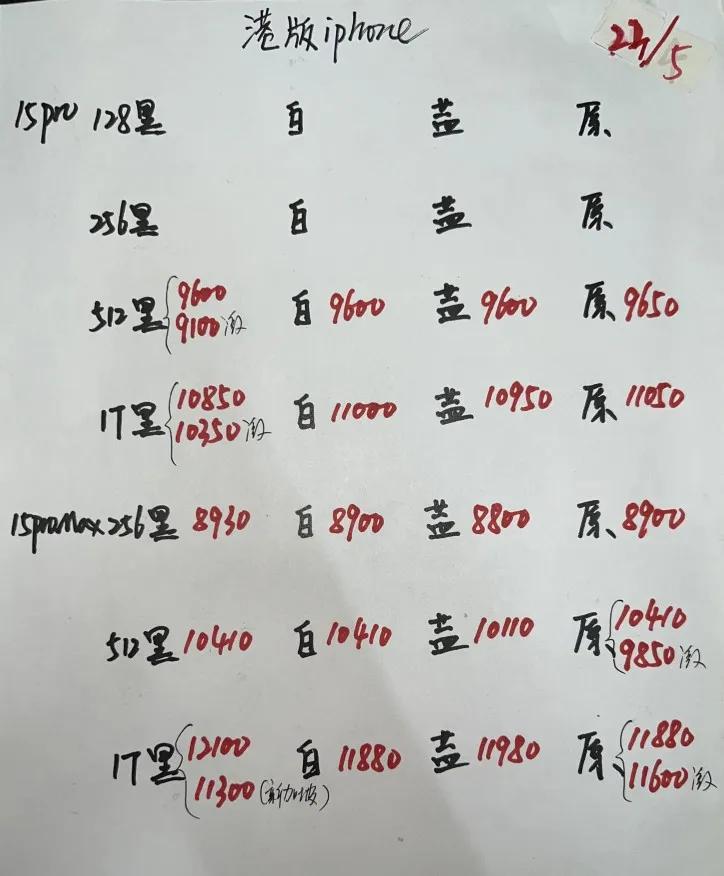 港版iphone
22/5
15pro 128黑 白 蓝 原
256黑 白 蓝 原
512黑 9600 9100激 白 9600 蓝 9600 原 9650
1T黑 10850 10350激 白 11000 蓝 10950 原 11050
15promax 256黑 8930 白 8900 蓝 8800 原 8900
512黑 10410 白 10410 蓝 10110 原 10410 9850激
1T黑 12100 11300(新加坡) 白 11880 蓝 11980 原 11880 11600激